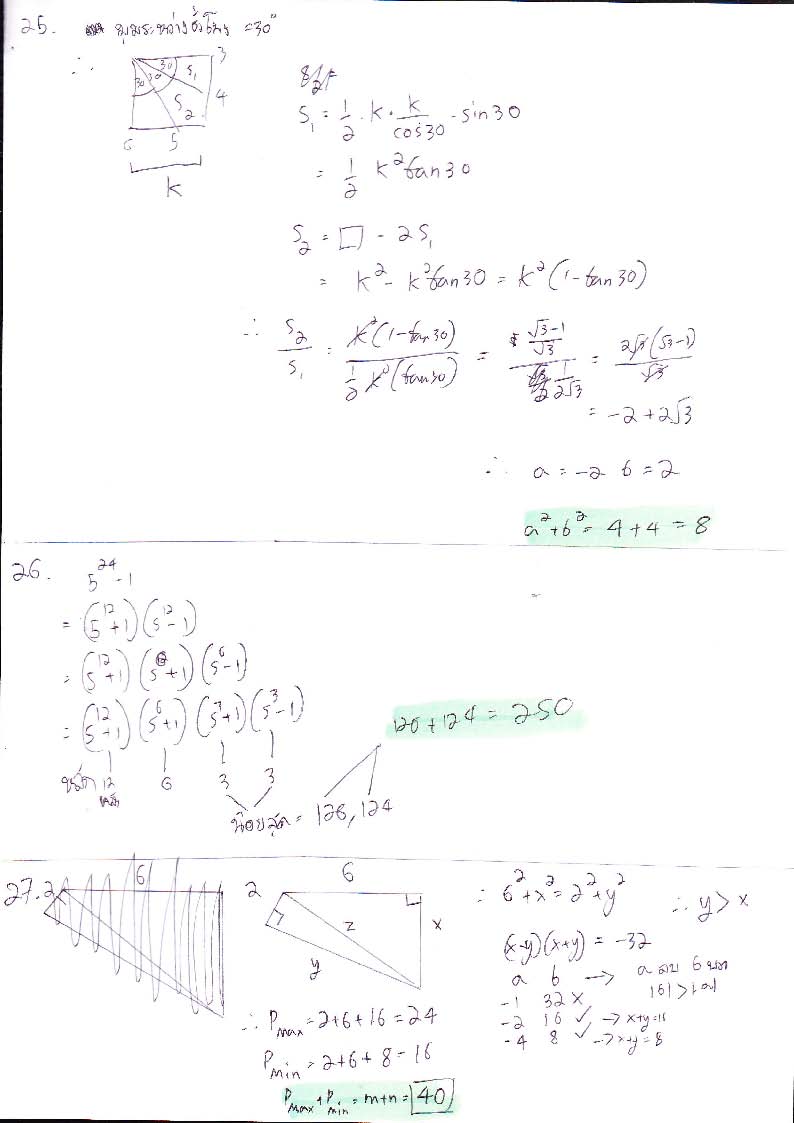 25. มุมระหว่างชั่วโมง = 30°
∴
30 30 30 S₁ S₂ 3 4 5 6
k
S₁ = 1/2 · k · k/cos30 · sin30
= 1/2 k² tan30
S₂ = □ - 2S₁
= k² - k² tan30 = k²(1 - tan30)
∴ S₂/S₁ = k²(1 - tan30) / (1/2 k²(tan30)) = ((√3 - 1)/√3) / (1/(2√3)) = 2√3(√3 - 1)/√3
= -2 + 2√3
∴ a = -2 b = 2
a² + b² = 4 + 4 = 8
26. 5²⁴ - 1
= (5¹² + 1)(5¹² - 1)
= (5¹² + 1)(5⁶ + 1)(5⁶ - 1)
= (5¹² + 1)(5⁶ + 1)(5³ + 1)(5³ - 1)
12 6 3 3
หลัก
น้อยสุด = 126, 124
126 + 124 = 250
27. 2 6
2 6 x y z
∴ 6² + x² = 2² + y² ∴ y > x
(x-y)(x+y) = -32
a b → a ลบ b บวก
|b| > |a|
-1 32 ×
-2 16 ✓ → x+y=16
-4 8 ✓ → x+y=8
∴ P max = 2+6+16 = 24
P min = 2+6+8 = 16
P max + P min = m+n = 40